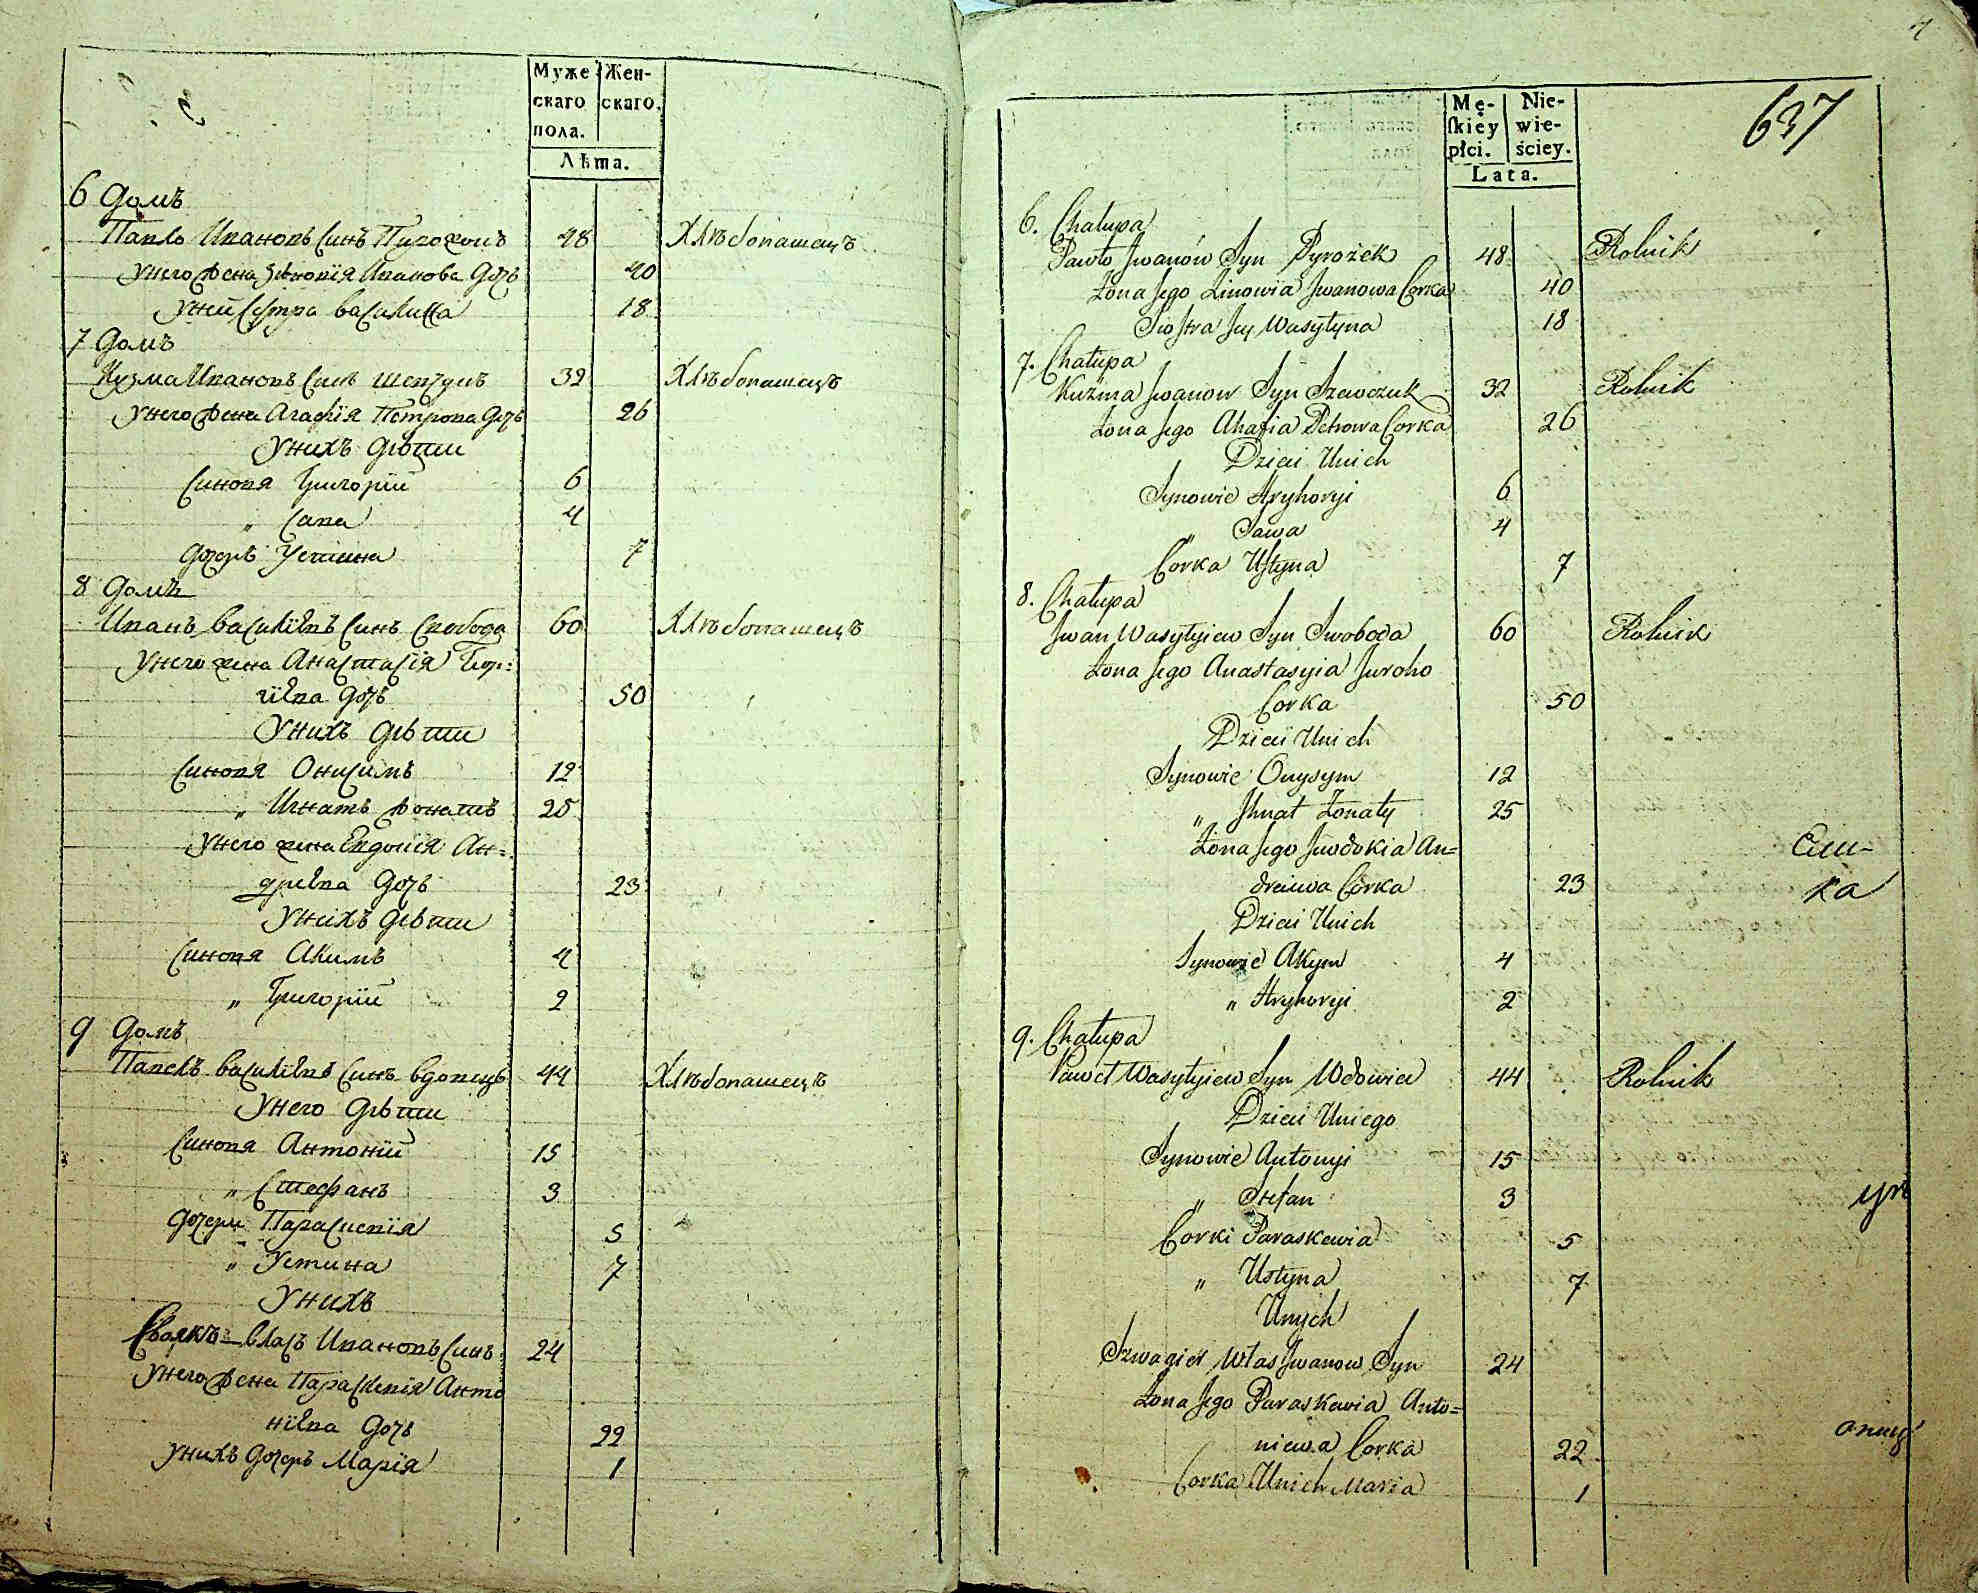 Муже-
скаго
пола.
Жен-
скаго.
Лѣта.
6 Домъ
Павло Ивановъ Синъ Пирожокъ 48 Хлѣбопашецъ
Унего жена Зѣновія Иванова Дочь 40
Уней Сестра Василина 18
7 Домъ
Кузма Ивановъ Синъ 32 Хлѣбопашецъ
Унего жена Агафія Петрова Дочь 26
Унихъ Дѣти
Синовя Григорій 6
„ Сава 4
Дочерь Устина 7
8 Домъ
Иванъ Василіевъ Синъ Свобода 60 Хлѣбопашецъ
Унего жена Анастасія
Дочь 50
Унихъ Дѣти
Синовя Онисимъ 12
„ Игнатъ жонатъ 25
Унего жена Евдокія Ан=
дреева Дочь 23
Унихъ Дѣти
Синовя Акимъ 4
„ Григорій 2
9 Домъ
Павелъ Василіевъ Синъ вдовецъ 44 Хлѣбопашецъ
Унего Дѣти
Синовя Антоній 15
„ Стефанъ 3
Дочери Параскевія 5
„ Устина 7
Унихъ
Своякъ Власъ Ивановъ Синъ 24
Унего жена Параскевія Анто
ніева Дочь 22
Унихъ Дочерь Марія 1
7
637
Mę-
skiey
płci.
Nie-
wie-
ściey.
Lata.
6. Chałupa
Pawło Jwanów Syn Pyrożek 48 Rolnik
Żona Jego Zinowia Jwanowa Corka 40
Siostra Jey Wasylyna 18
7. Chałupa
Kuźma Jwanow Syn Szewczuk 32 Rolnik
Żona Jego Ahafia Petrowa Corka 26
Dzieci Unich
Synowie Hryhoryi 6
„ Sawa 4
Corka Ustyna 7
8. Chałupa
Jwan Wasylyiew Syn Swoboda 60 Rolnik
Żona Jego Anastasyia Juroho
Corka 50
Dzieci Unich
Synowie Onysym 12
„ Jhnat Żonaty 25
Żona Jego Jwdokia An=
dreiewa Córka 23
Dzieci Unich
Synowie Akym 4
„ Hryhoryi 2
9. Chałupa
Paweł Wasylyiew Syn Wdowiec 44 Rolnik
Dzieci Uniego
Synowie Antonyi 15
„ Stefan 3
Corki Paraskewia 5
„ Ustyna 7
Unych
Szwagier Włas Jwanow Syn 24
Żona Jego Paraskewia Anto=
niewa Corka 22
Corka Unich Maria 1